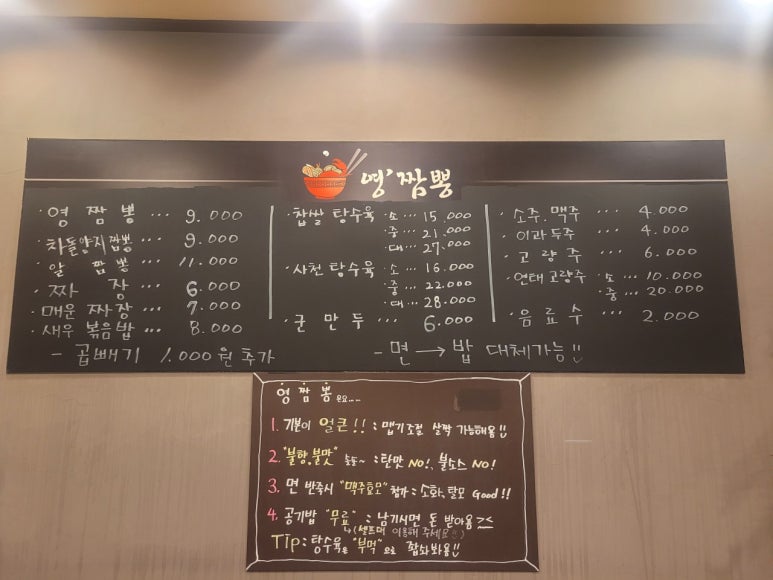 영'짬뽕
· 영 짬 뽕 ··· 9.000
· 차돌양지짬뽕 ··· 9.000
· 알 짬 뽕 ··· 11.000
· 짜 장 ··· 6.000
· 매운 짜장 ··· 7.000
· 새우 볶음밥 ··· 8.000
- 곱빼기 1.000원 추가
· 찹쌀 탕수육 소 ··· 15.000
중 ··· 21.000
대 ··· 27.000
· 사천 탕수육 소 ··· 16.000
중 ··· 22.000
대 ··· 28.000
· 군 만 두 ··· 6.000
- 면 → 밥 대체가능!!
· 소주, 맥주 ··· 4.000
· 이과두주 ··· 4.000
· 고 량 주 ··· 6.000
· 연태고량주 소 ··· 10.000
중 ··· 20.000
· 음 료 수 ··· 2.000
영 짬 뽕 은요....
1. 기본이 얼큰!! : 맵기조절 살짝 가능해용!!
2. "불향,불맛" ~ : 탄맛 NO!, 불소스 NO!
3. 면 반죽시 "맥주효모" 첨가 : 소화, 탈모 Good!!
4. 공기밥 "무료" : 남기시면 돈 받아용 >.<
↳(셀프대 이용해 주세요!!)
Tip : 탕수육은 "부먹"으로 합쇼봐용!!